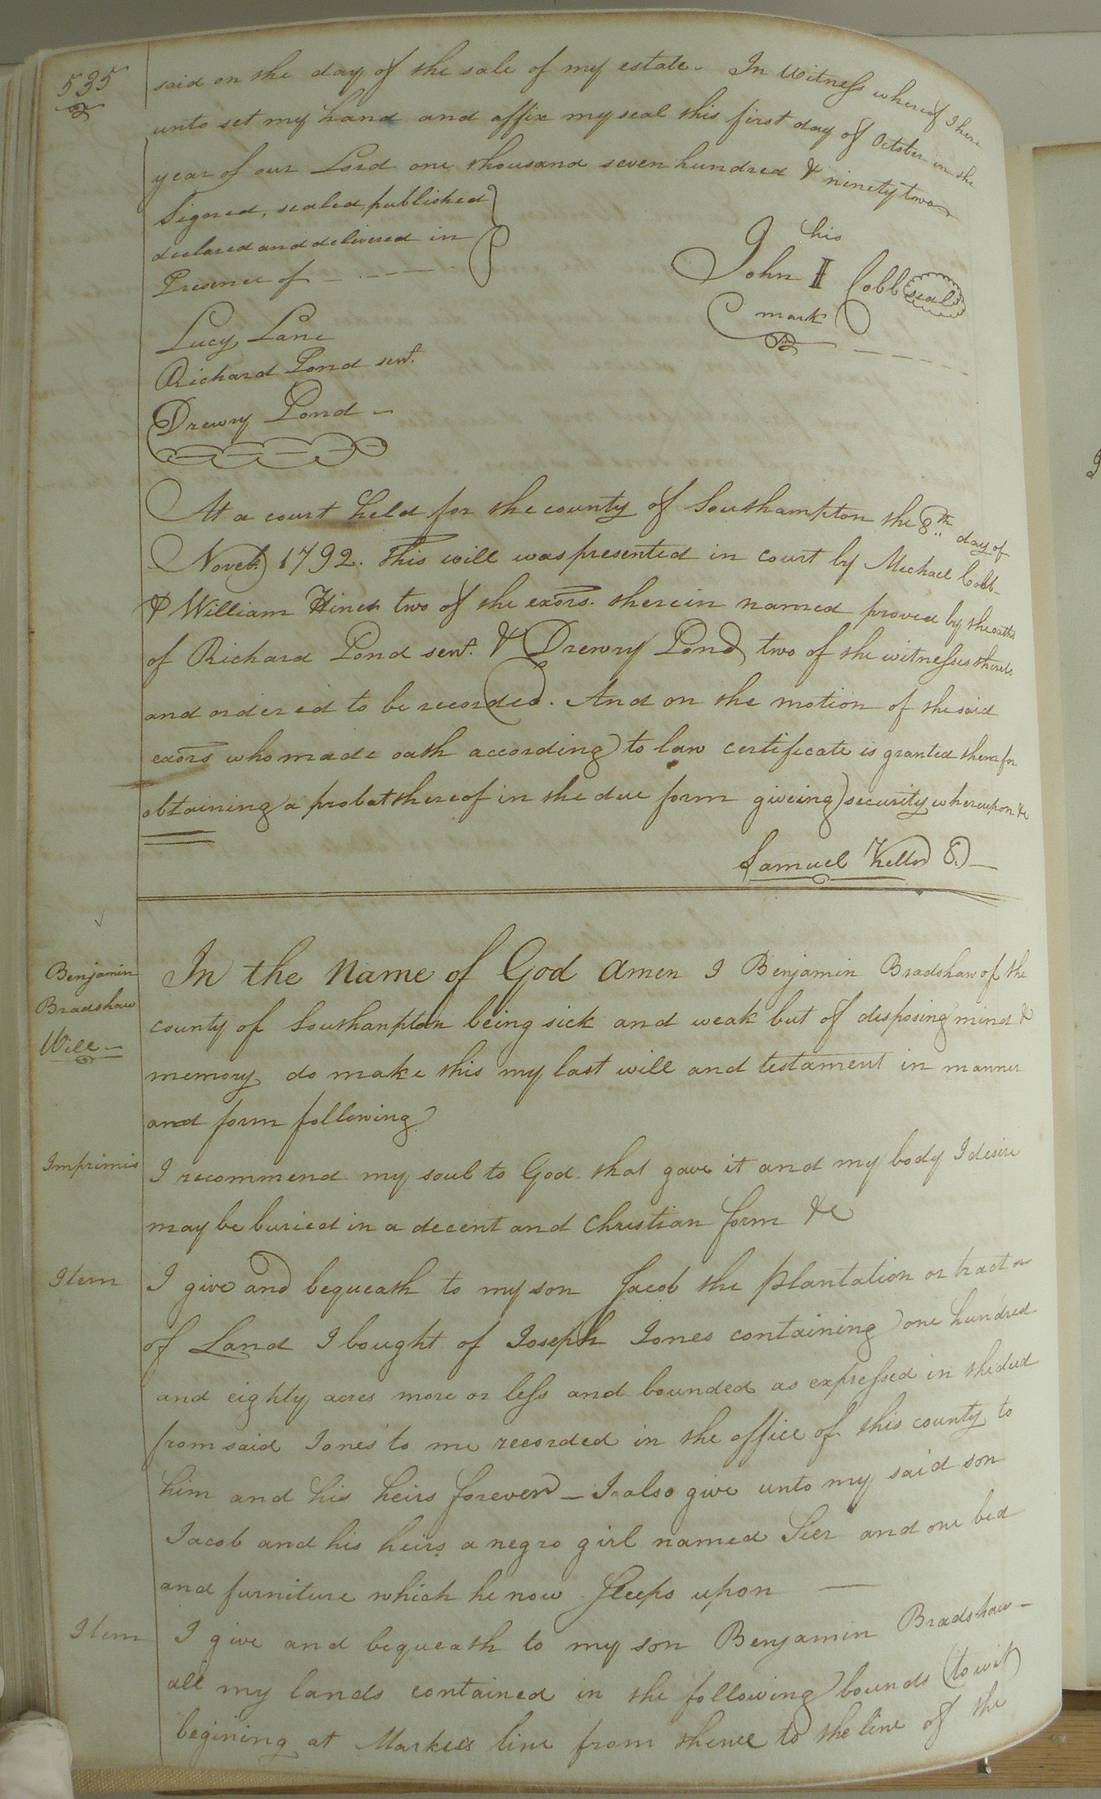 535
said on the day of the sale of my estate. In Witness whereof I here
unto set my hand and affix my seal this first day of October in the
year of our Lord one thousand seven hundred & ninety two
Signed, sealed published
declared and delivered in
Presence of
his
John II Cobb seal
mark
Lucy Lane
Richard Pond senr.
Drewry Pond
At a court held for the county of Southampton the 8th day of
Novr. 1792. This will was presented in court by Michael Cobb
& William Hines two of the exors. therein named proved by the oaths
of Richard Pond senr. & Drewry Pond two of the witnesses thereto
and ordered to be recorded. And on the motion of the said
exors who made oath according to law certificate is granted them for
obtaining a probat thereof in the due form giveing security whereupon &c
Samuel Kello
Benjamin
Bradshaw
Will
In the Name of God Amen I Benjamin Bradshaw of the
county of Southampton being sick and weak but of disposing mind &
memory do make this my last will and testament in manner
and form following
Imprimis I recommend my soul to God that gave it and my body I desire
may be buried in a decent and Christian form &c
Item I give and bequeath to my son Jacob the plantation or tract
of Land I bought of Joseph Jones containing one hundred
and eighty acres more or less and bounded as expressed in the deed
from said Jones to me recorded in the office of this county to
him and his heirs forever - I also give unto my said son
Jacob and his heirs a negro girl named and one bed
and furniture which he now sleeps upon
Item I give and bequeath to my son Benjamin Bradshaw
all my lands contained in the following bounds (to wit)
begining at line from thence to the line of the